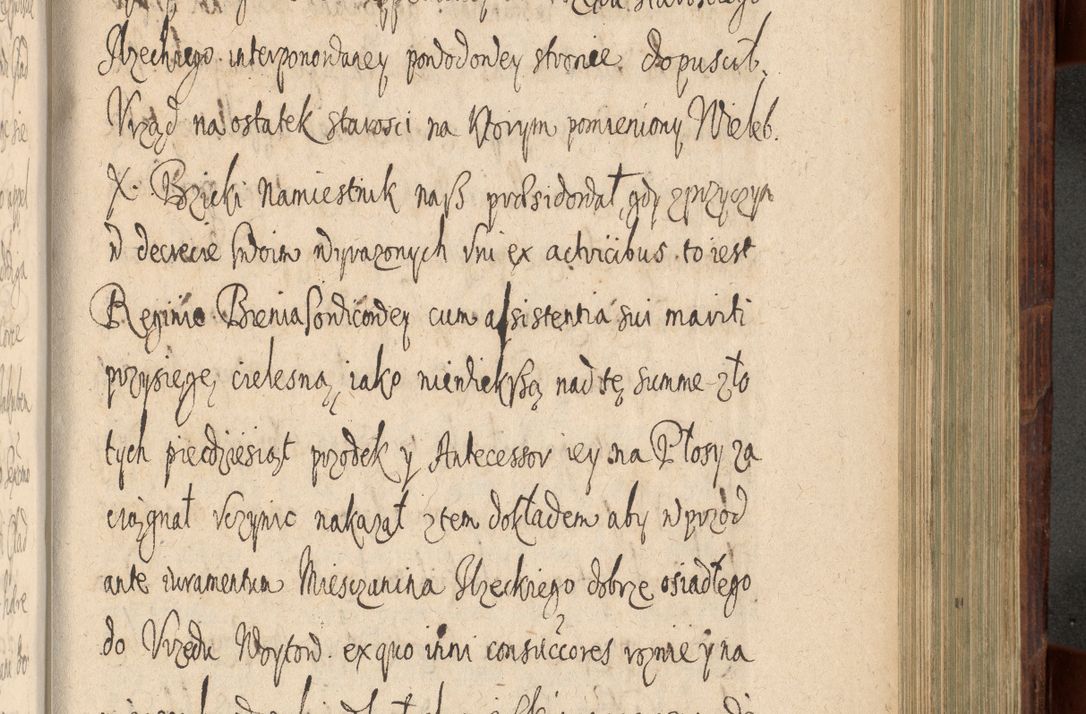 Ilzeckiego interponowaney powodowey stronie dopuscił.
Vrząd na ostatek starosci na ktorym pomieniony Wieleb.
X. Bzicki Namiestnik nasz praesidował, gdy z przyczyn
w decrecie swoim wyrazonych vni ex actricibus to iest
Reginie Bieniasowicowey cum assistentia sui mariti
przysięgę cielesną, iako niewiekszą nad tę summę zło
tych piecdziesiąt przodek y Antecessor iey na Płosy za
ciągnął vczynic nakazał z tem dokładem aby wprzod
ante iuramentum Miesczanina Ilzeckiego dobrze osiadłego
do Vrzędu Woytow. ex quo inni consuccores roznie y na